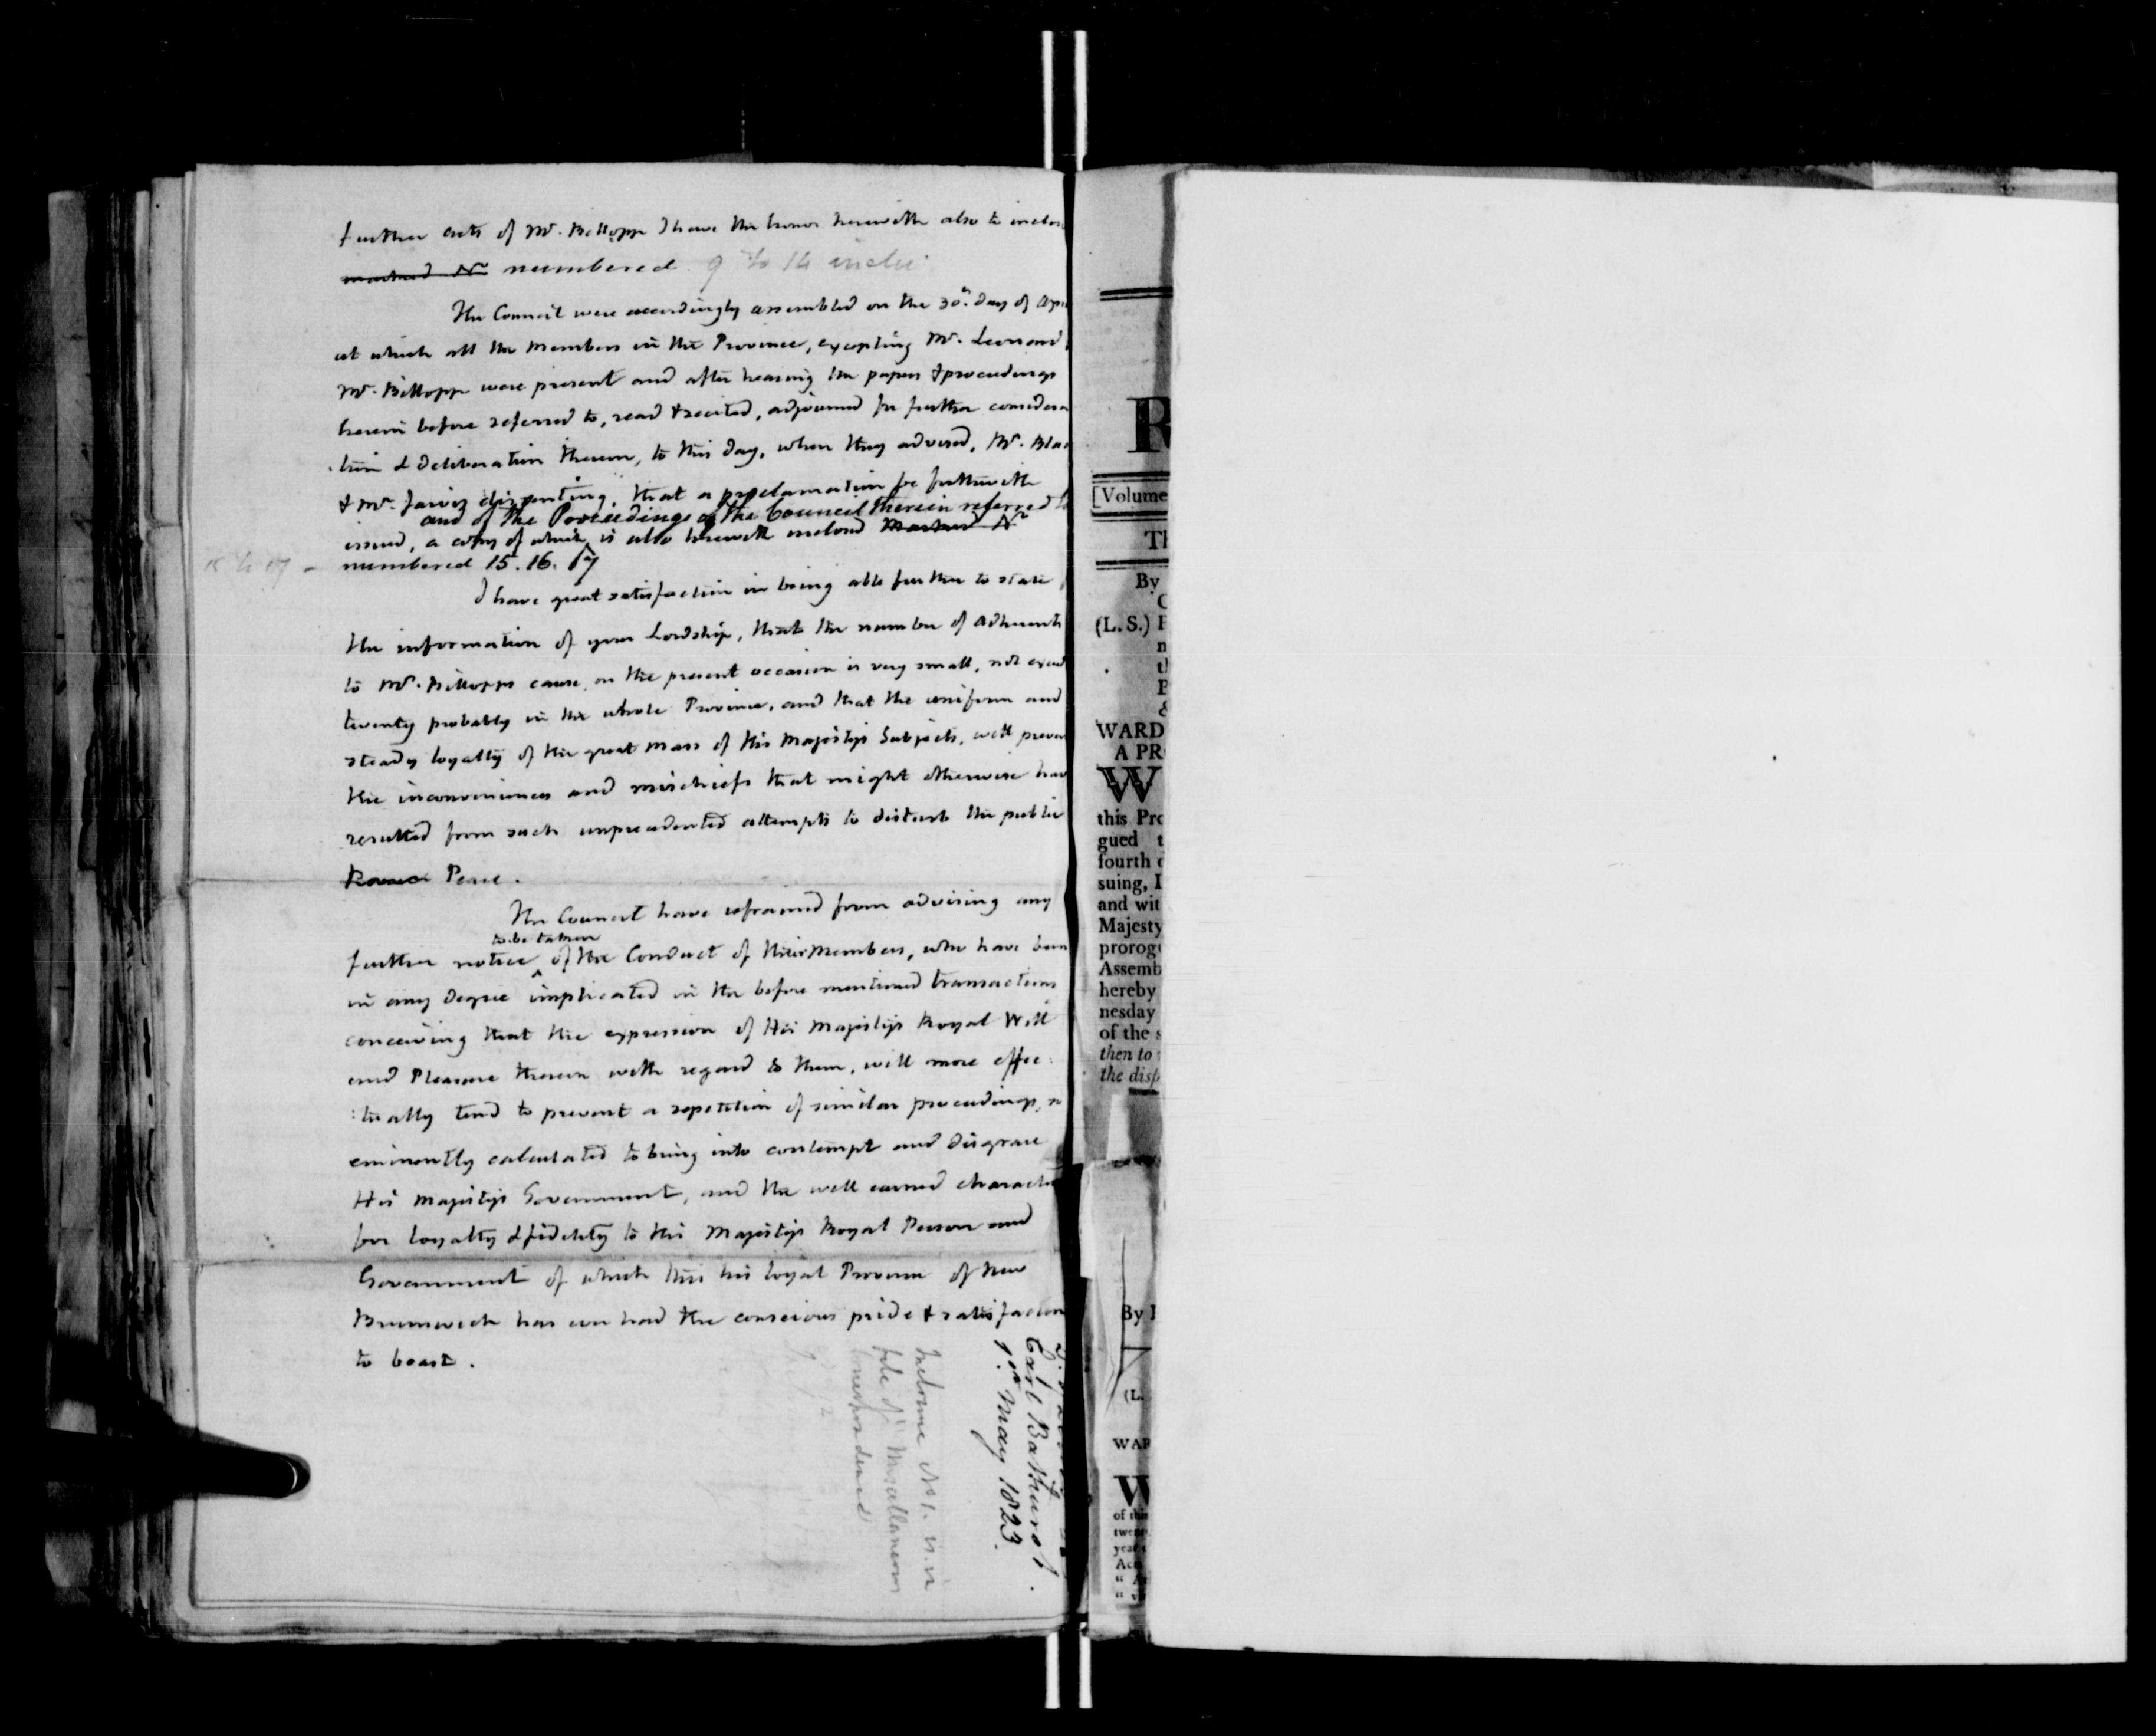 further acts of Mr. Billopp I have the honor herewith also to inclos
marked No numbered 9 to 14 inclu
The Council were accordingly assembled on the 30th. day of Apr
at which all the Members in the Province, excepting Mr. Leonard
Mr. Billopp were present and after hearing the papers & proceedings
herein before referred to, read & recited, adjourned for further considera
:tion & deliberation thereon, to this day, when they advised, Mr. Bla
& Mr. Jarvis dissenting, that a proclamation be forthwith
and of the Proceedings of the Council therein referred to
issued, a copy of which ^ is also herewith inclosed Marked No
15 to 17 -
numbered 15. 16. 17
I have great satisfaction in being able further to state
the information of your Lordship, that the number of adherents
to Mr. Billopps cause, on the present occasion is very small, not exceed
twenty probably in the whole Province, and that the uniform and
steady loyalty of the great mass of His Majestys Subjects, will preven
the inconveniences and mischiefs that might otherwise hav
resulted from such unprecedented attempts to disturb the public
Peace.
The Council have refrained from advising any
to be taken
further notice ^ of the Conduct of their Members, who have been
in any degree implicated in the before mentioned transactions
conceiving that the expression of His Majestys Royal Will
and Pleasure thereon with regard to them, will more effec:
:tually tend to prevent a repetition of similar proceedings, so
eminently calculated to bring into contempt and disgrace
His Majestys Government, and the well earned characte
for loyalty & fidelity to His Majestys Royal Person and
Government of which this his loyal Province of New
Brunswick has ever had the conscious pride & satisfaction
to boast.
Earl Bathurst.
1st. May 1823.
Inclosure No 1. is in
file of "Miscellaneous
Correspondence"
R
[Volume
Th
By
(L. S.)
WARD
A PR
W
this Pro
gued t
fourth
suing, I
and wit
Majesty
prorog
Assemb
hereby
nesday
of the s
then to
the disp
By
(L.
WAR
W
of this
twen
year
Ac